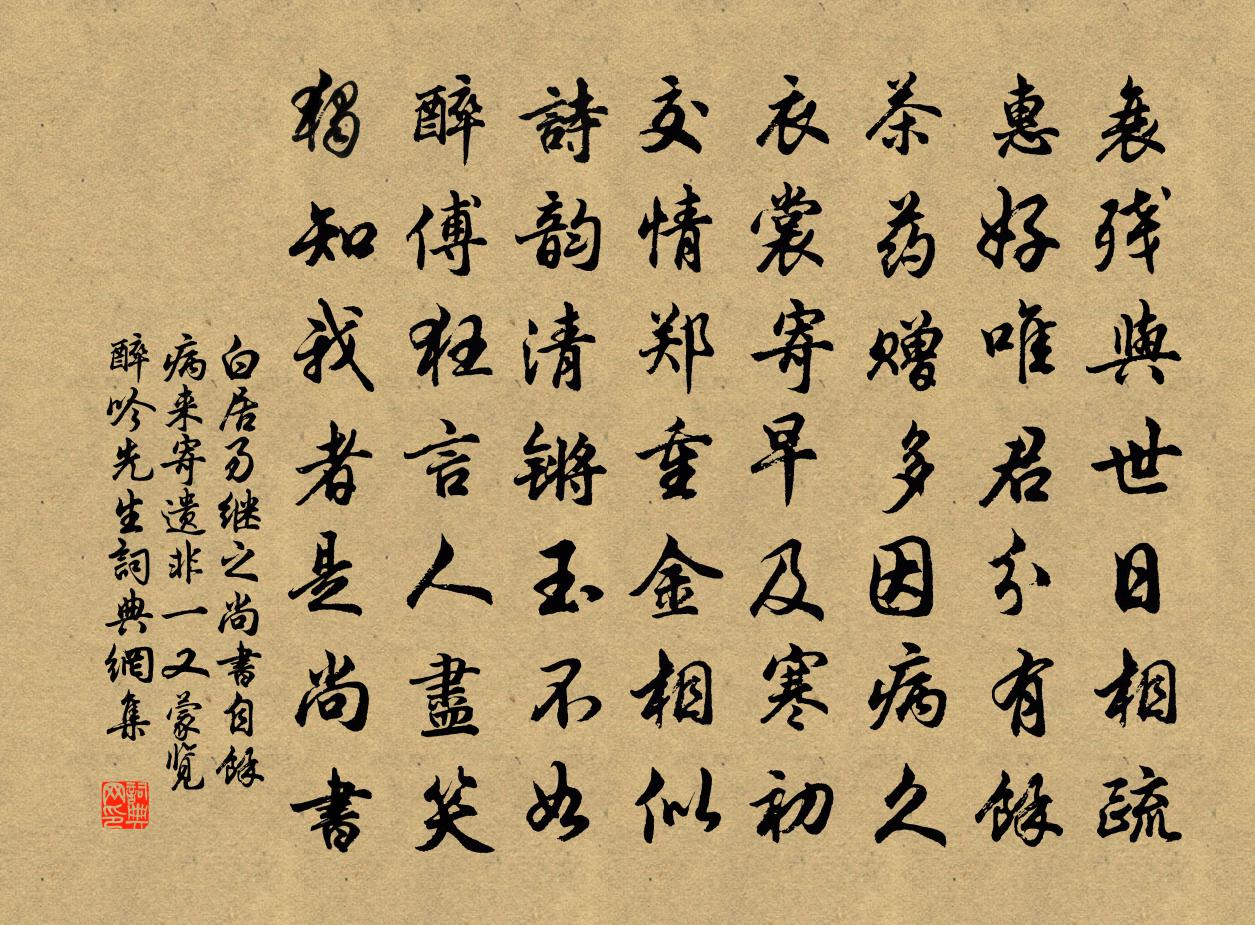 衰残與世日相疏
惠好唯君分有餘
茶药赠多因病久
衣裳寄早及寒初
交情郑重金相似
詩韵清锵玉不如
醉傅狂言人盡笑
獨知我者是尚書
白居易继之尚書自餘
病来寄遗非一又蒙览
醉吟先生詞典網集
詞典
网印